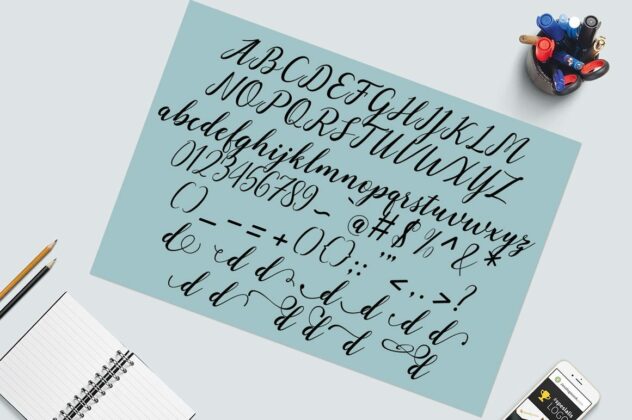 ABCDEFGHIJKLM
NOPQRSTUVWXYZ
abcdefghijklmnopqrstuvwxyz
0123456789~ @#$%^&*
()_-=+(){};:'"<,.>?
d d d d d d d
d d d d d d